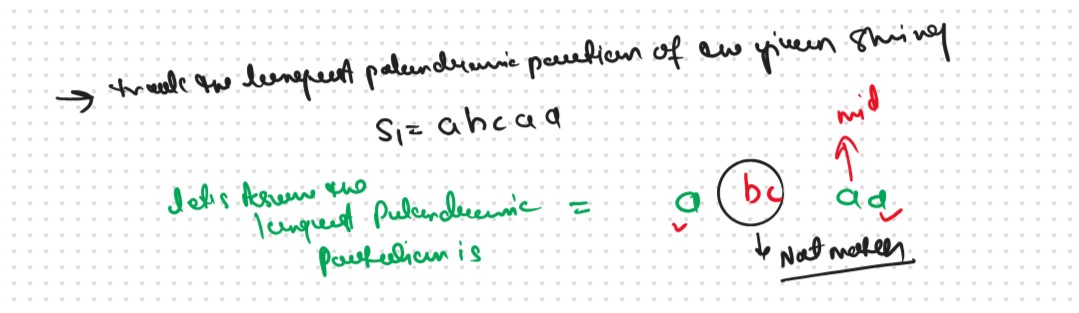 → track the longest palendromic partian of the given string
S1 = abcaa
mid
lets Assume the
longest Palendromic = a bc aa
Partetion is
↓ Not match